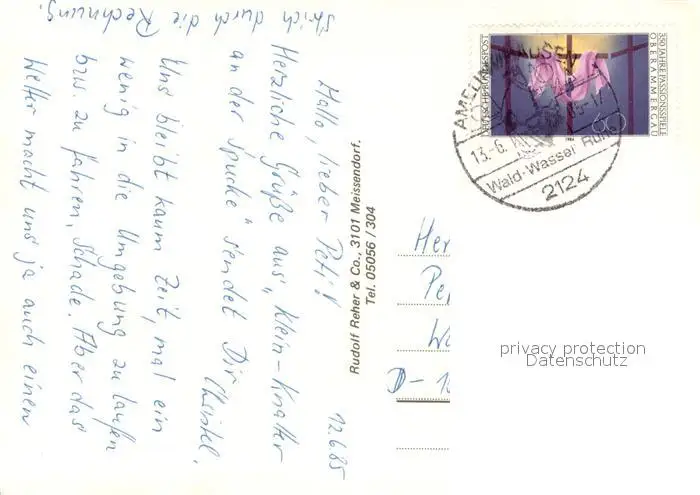 12.6.85
Hallo, lieber Peti!
Herzliche Grüße aus „Klein-Knatter
an der Spucke" sendet Dir
Christel.
Uns bleibt kaum Zeit, mal ein
wenig in die Umgebung zu laufen
bzw. zu fahren. Schade. Aber das
Wetter macht uns ja auch einen
Strich durch die Rechnung.
Rudolf Reher & Co., 3101 Meissendorf.
Tel. 05056 / 304
DEUTSCHE BUNDESPOST
60
350 JAHRE PASSIONSSPIELE
OBERAMMERGAU
13.-6.
Wald-Wasser
2124
Her
Pe
D-1
privacy protection
Datenschutz